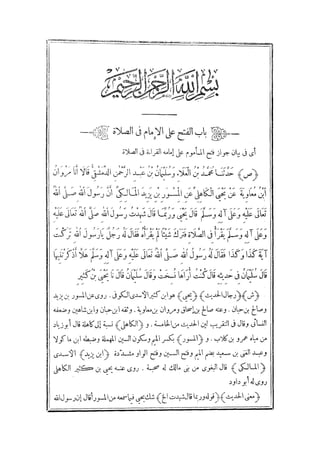 بسم الله الرحمن الرحيم
باب الفتح على الإمام فى الصلاة
أى فى بيان جواز فتح المأموم على إمامه القراءة فى الصلاة
(ص) حَدَّثَنَا مُحَمَّدُ بْنُ الْعَلَاءِ وَسُلَيْمَانُ بْنُ عَبْدِ الرَّحْمٰنِ الدِّمَشْقِيُّ قَالَا أَنَا مَرْوَانُ
ابْنُ مُعَاوِيَةَ عَنْ يَحْيَى الْكَاهِلِيِّ عَنِ الْمُسَوَّرِ بْنِ يَزِيدَ الْمَالِكِيِّ أَنَّ رَسُولَ اللهِ صَلَّى اللهُ
تَعَالَى عَلَيْهِ وَعَلَى آلِهِ وَسَلَّمَ قَالَ يَحْيَى وَرُبَّمَا قَالَ شَهِدْتُ رَسُولَ اللهِ صَلَّى اللهُ تَعَالَى عَلَيْهِ
وَعَلَى آلِهِ وَسَلَّمَ يَقْرَأُ فِى الصَّلَاةِ فَتَرَكَ شَيْئًا لَمْ يَقْرَأْهُ فَقَالَ لَهُ رَجُلٌ يَارَسُولَ اللهِ تَرَكْتَ
آيَةَ كَذَا وَكَذَا فَقَالَ لَهُ رَسُولُ اللهِ صَلَّى اللهُ تَعَالَى عَلَيْهِ وَعَلَى آلِهِ وَسَلَّمَ هَلَّا أَذْكَرْتَنِيهَا
قَالَ سُلَيْمَانُ فِى حَدِيثِهِ قَالَ كُنْتُ أُرَاهَا نُسِخَتْ وَقَالَ سُلَيْمَانُ قَالَ نَا يَحْيَى بْنُ كَثِيرٍ
(ش) (رجال الحديث) (يحيى) هو ابن كثير الأسدى الكوفى. روى عن المسور بن يزيد
وصالح بن حيان. وعنه صالح بن إسحاق ومروان بن معاوية. وثقه ابن حبان وابن شاهين وضعفه
النسائى وقال فى التقريب لين الحديث من الخامسة. و (الكاهلى) نسبة إلى كاهلة قال أبو زياد
من مياه عمرو بن كلاب. و (المسور) بكسر الميم وسكون السين المهملة وضبطه ابن ماكولا
وعبد الغنى بن سعيد بضم الميم وفتح السين وفتح الواو مشددة (ابن يزيد) الأسدى
(المالكى) قال البغوى من بنى مالك له صحبة. روى عنه يحيى بن كثير الكاهلى
روى له أبو داود
(معنى الحديث) (قوله وربما قال شهدت الخ) شك يحيى فيما سمعه من المسور أقال إن رسول الله